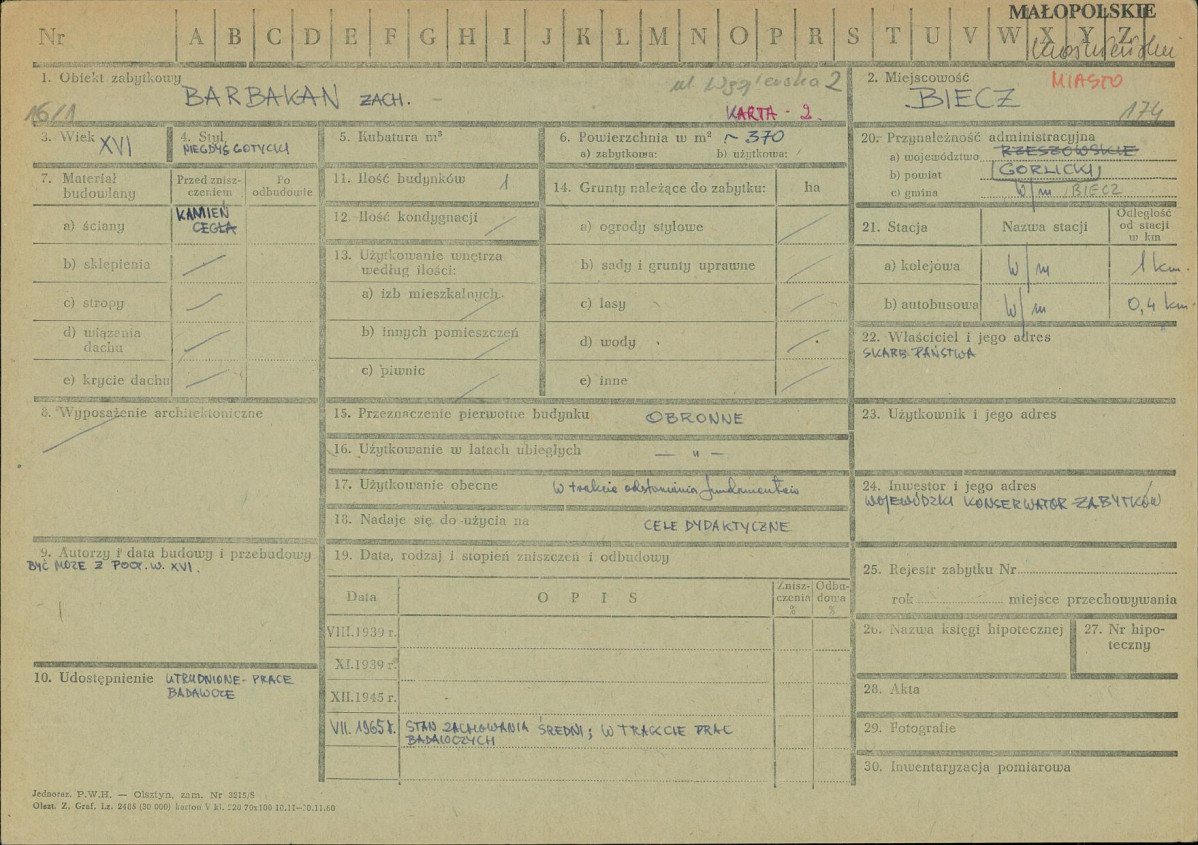 MAŁOPOLSKIE
Nr A B C D E F G H I J K L M N O P R S T U V W X Y Z
1. Obiekt zabytkowy BARBAKAN ZACH.
ul Węgierska 2
KARTA - 2.
16/1
2. Miejscowość MIASTO
BIECZ
174
3. Wiek XVI
4. Styl
NIEGDYŚ GOTYCKI
5. Kubatura m³
6. Powierzchnia w m² ~ 370
a) zabytkowa: b) użytkowa:
7. Materiał budowlany
Przed zniszczeniem
Po odbudowie
a) ściany KAMIEŃ
CEGŁA
b) sklepienia
c) stropy
d) wiązenia dachu
e) krycie dachu
8. Wyposażenie architektoniczne
9. Autorzy i data budowy i przebudowy
BYĆ MOŻE Z POCZ. W. XVI.
10. Udostępnienie UTRUDNIONE - PRACE
BADAWCZE
11. Ilość budynków 1
12. Ilość kondygnacji
13. Użytkowanie wnętrza
według ilości:
a) izb mieszkalnych
b) innych pomieszczeń
c) piwnic
14. Grunty należące do zabytku: ha
a) ogrody stylowe
b) sady i grunty uprawne
c) lasy
d) wody
e) inne
15. Przeznaczenie pierwotne budynku OBRONNE
16. Użytkowanie w latach ubiegłych — " —
17. Użytkowanie obecne W trakcie odsłaniania fundamentów
18. Nadaje się do użycia na CELE DYDAKTYCZNE
19. Data, rodzaj i stopień zniszczeń i odbudowy
Data OPIS Zniszczenia % Odbudowa %
VIII.1939 r.
XI.1939 r.
XII.1945 r.
VII. 1965 r. STAN ZACHOWANIA ŚREDNI; W TRAKCIE PRAC
BADAWCZYCH
20. Przynależność administracyjna
a) województwo RZESZOWSKIE
b) powiat GORLICKI
c) gmina W/m BIECZ
21. Stacja Nazwa stacji Odległość od stacji w km
a) kolejowa W/m 1 km.
b) autobusowa W/m 0,4 km.
22. Właściciel i jego adres
SKARB PAŃSTWA
23. Użytkownik i jego adres
24. Inwestor i jego adres
WOJEWÓDZKI KONSERWATOR ZABYTKÓW
25. Rejestr zabytku Nr
rok miejsce przechowywania
26. Nazwa księgi hipotecznej
27. Nr hipoteczny
28. Akta
29. Fotografie
30. Inwentaryzacja pomiarowa
Jednoraz. P.W.H. — Olsztyn, zam. Nr 3215/S
Olszt. Z. Graf. Lz. 2405 (30 000) karton V kl. 220 70x100 10.11—30.11.60